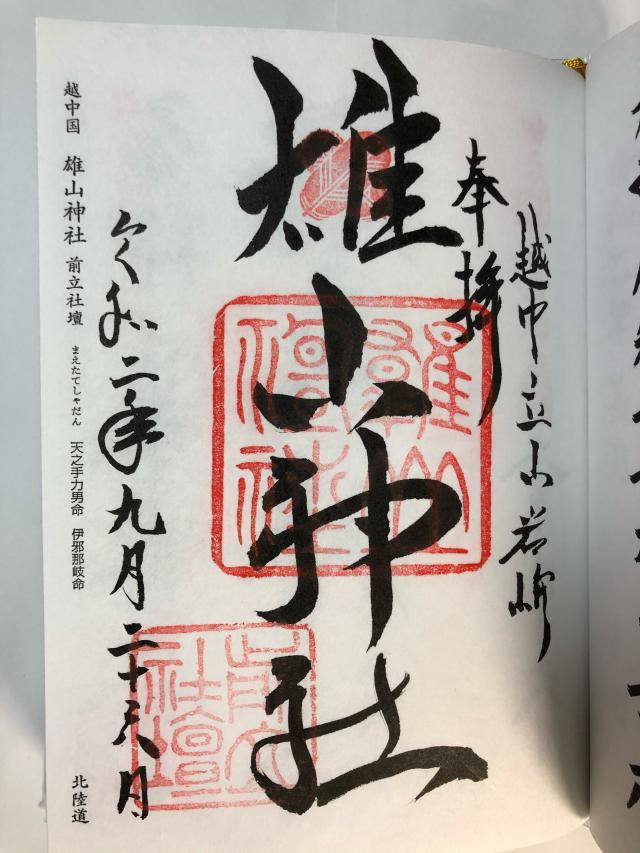 越中立山岩峅
奉拝
雄山神社
前立
社壇
令和二年九月二十
越中国 雄山神社 前立社壇 まえたてしゃだん 天之手力男命 伊邪那岐命 北陸道